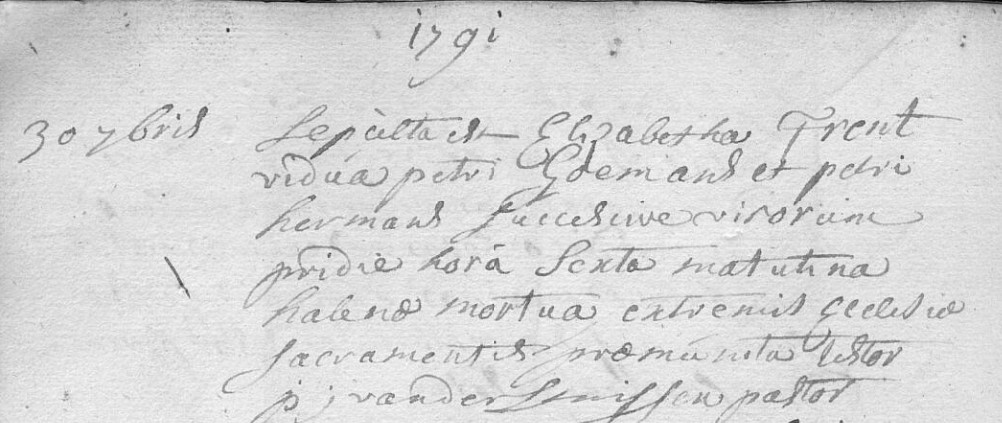 1791
30 7bris sepulta est Elizabetha Trent
vidua petri Edemans et petri
hermans successive virorum
pridie horâ sexta matutina
halenœ mortua extremis Ecclesiœ
sacramentis prœmunita testor
p j vander Smissen pastor